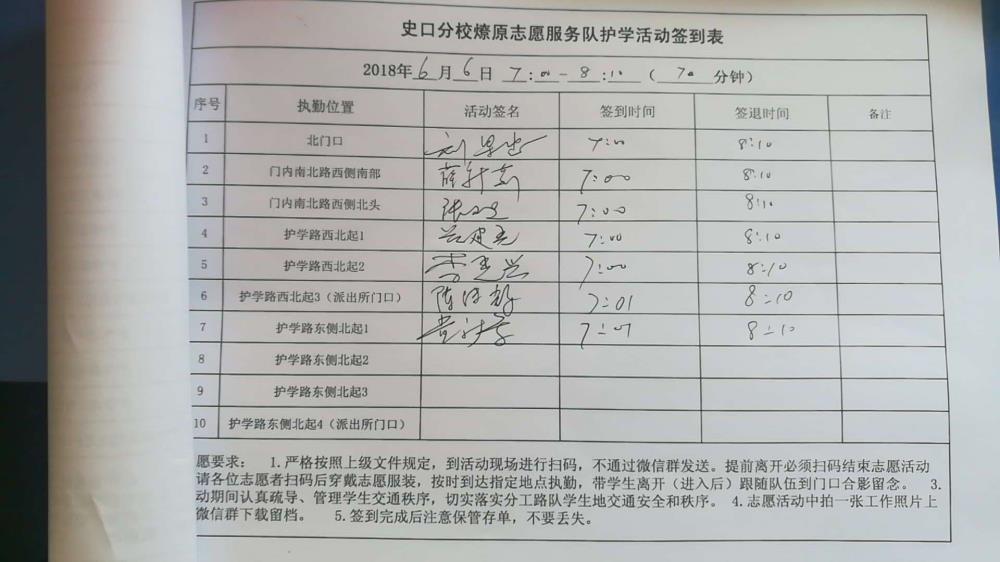 史口分校燎原志愿服务队护学活动签到表
2018年6月6日 7:00-8:10（70分钟）
序号 执勤位置 活动签名 签到时间 签退时间 备注
1 北门口 7:00 8:10
2 门内南北路西侧南部 7:00 8:10
3 门内南北路西侧北头 7:00 8:10
4 护学路西北起1 7:00 8:10
5 护学路西北起2 7:00 8:10
6 护学路西北起3（派出所门口） 7:01 8:10
7 护学路东侧北起1 7:01 8:10
8 护学路东侧北起2
9 护学路东侧北起3
10 护学路东侧北起4（派出所门口）
愿要求： 1.严格按照上级文件规定，到活动现场进行扫码，不通过微信群发送。提前离开必须扫码结束志愿活动
请各位志愿者扫码后穿戴志愿服装，按时到达指定地点执勤，带学生离开（进入后）跟随队伍到门口合影留念。 3.
动期间认真疏导、管理学生交通秩序，切实落实分工路队学生地交通安全和秩序。 4.志愿活动中拍一张工作照片上
微信群下载留档。 5.签到完成后注意保管存单，不要丢失。